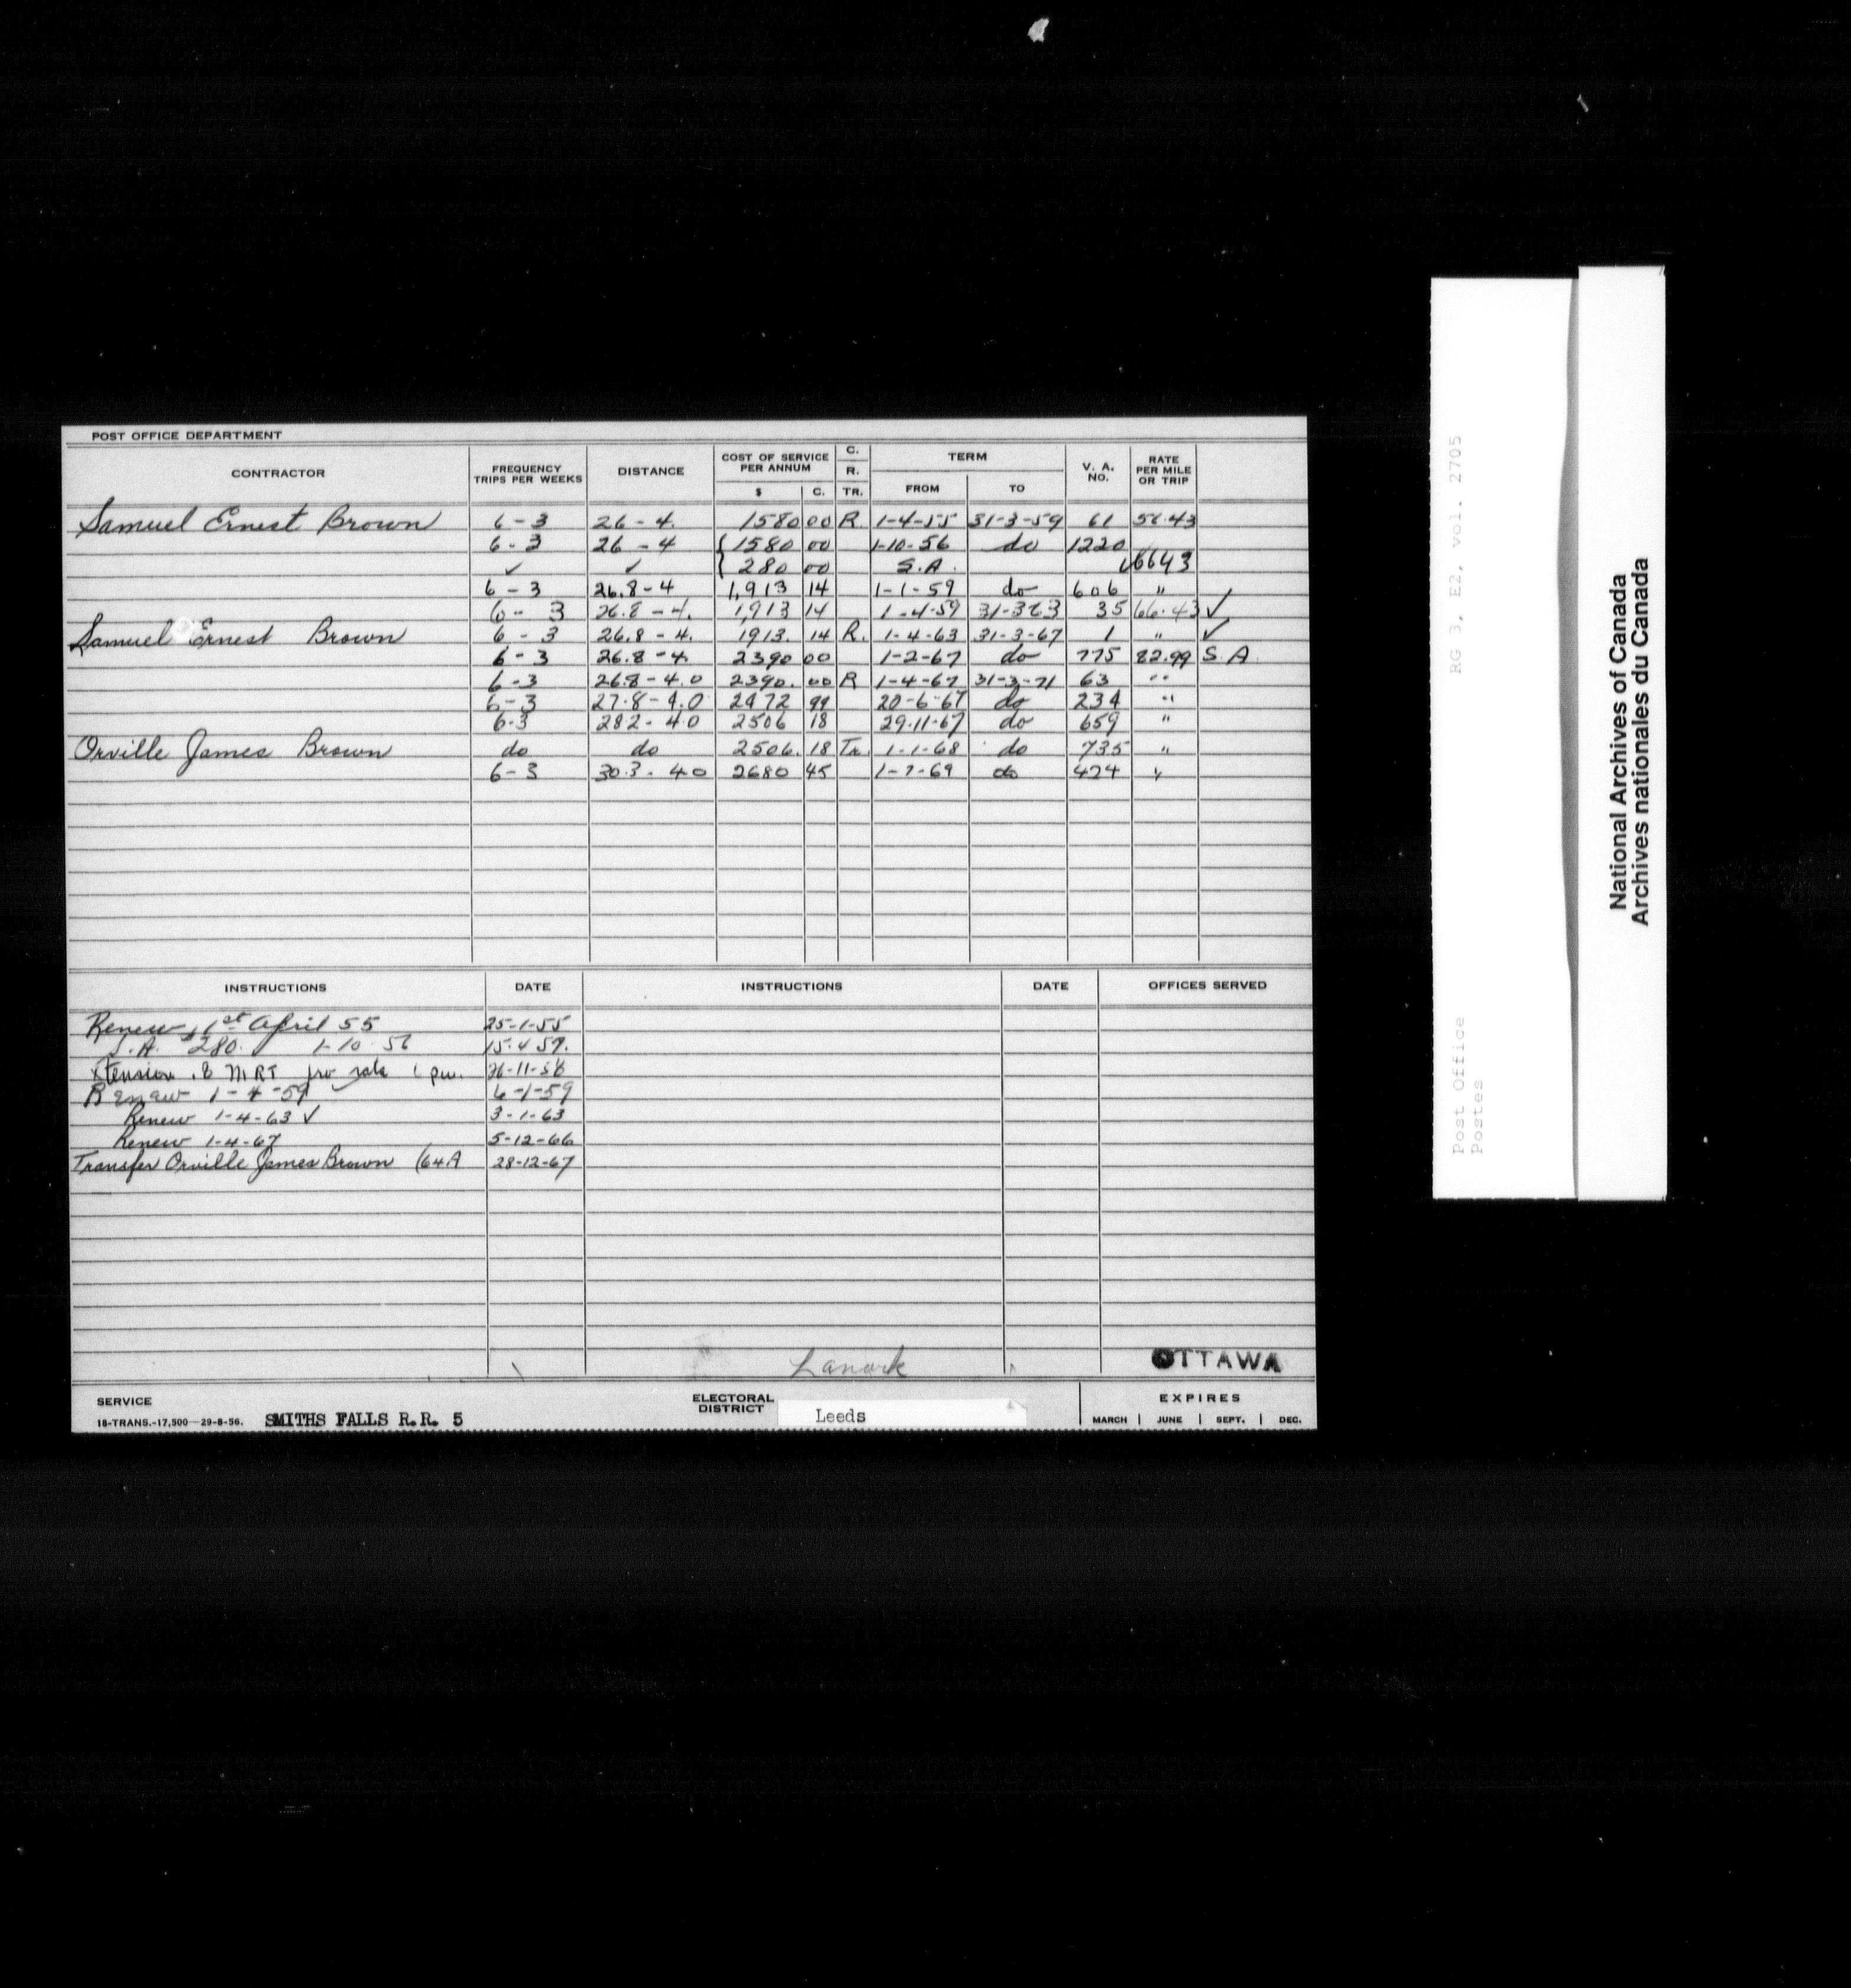 POST OFFICE DEPARTMENT
CONTRACTOR FREQUENCY TRIPS PER WEEKS DISTANCE COST OF SERVICE PER ANNUM $ C. C. R. TR. TERM FROM TO V. A. NO. RATE PER MILE OR TRIP
Samuel Ernest Brown 6-3 26-4. 1580 00 R. 1-4-55 31-3-59 61 56.43
6-3 26-4 { 1580 00 1-10-56 do 1220
✓ ✓ { 280 00 S.A. 6643
6-3 26.8-4 1,913 14 1-1-59 do 606 "
6-3 26.8-4. 1,913 14 1-4-59 31-363 35 66.43 ✓
Samuel Ernest Brown 6-3 26.8-4. 1913. 14 R. 1-4-63 31-3-67 1 " ✓
6-3 26.8-4 2390 00 1-2-67 do 775 82.99 S.A.
6-3 26.8-4.0 2390. 00 R 1-4-67 31-3-71 63 "
6-3 27.8-4.0 2472 99 20-6-67 do 234 "
6-3 282-40 2506 18 29-11-67 do 659 "
Orville James Brown do do 2506. 18 Tr. 1-1-68 do 735 "
6-3 30.3-40 2680 45 1-7-69 do 424 "
INSTRUCTIONS DATE INSTRUCTIONS DATE OFFICES SERVED
Renew 1st April 55 25-1-55
S.A. 280. 1-10-56 15.4 57.
Xtension .8 MRT pro rata 26-11-58
Renew 1-4-59 6-1-59
Renew 1-4-63 ✓ 3-1-63
Renew 1-4-67 5-12-66
Transfer Orville James Brown (64A 28-12-67
Lanark OTTAWA
SERVICE ELECTORAL DISTRICT Leeds EXPIRES
18-TRANS.-17,500-29-8-56. SMITHS FALLS R.R. 5 MARCH | JUNE | SEPT. | DEC.
RG 3, E2, vol. 2705
Post Office
Postes
National Archives of Canada
Archives nationales du Canada